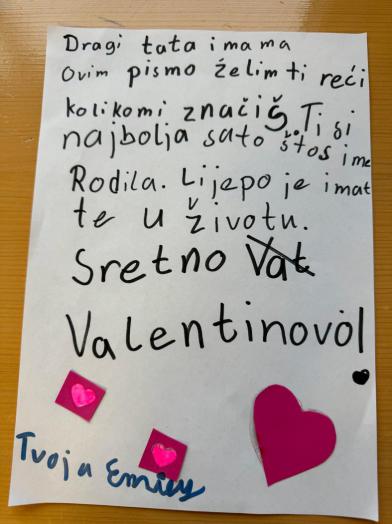 Dragi tata i mama
Ovim pismo želim ti reći
koliko mi značiš. Ti si
najbolja sato štos ime
Rodila. Lijepo je imat
te u životu.
Sretno Vat
Valentinovo!
Tvoja Emily